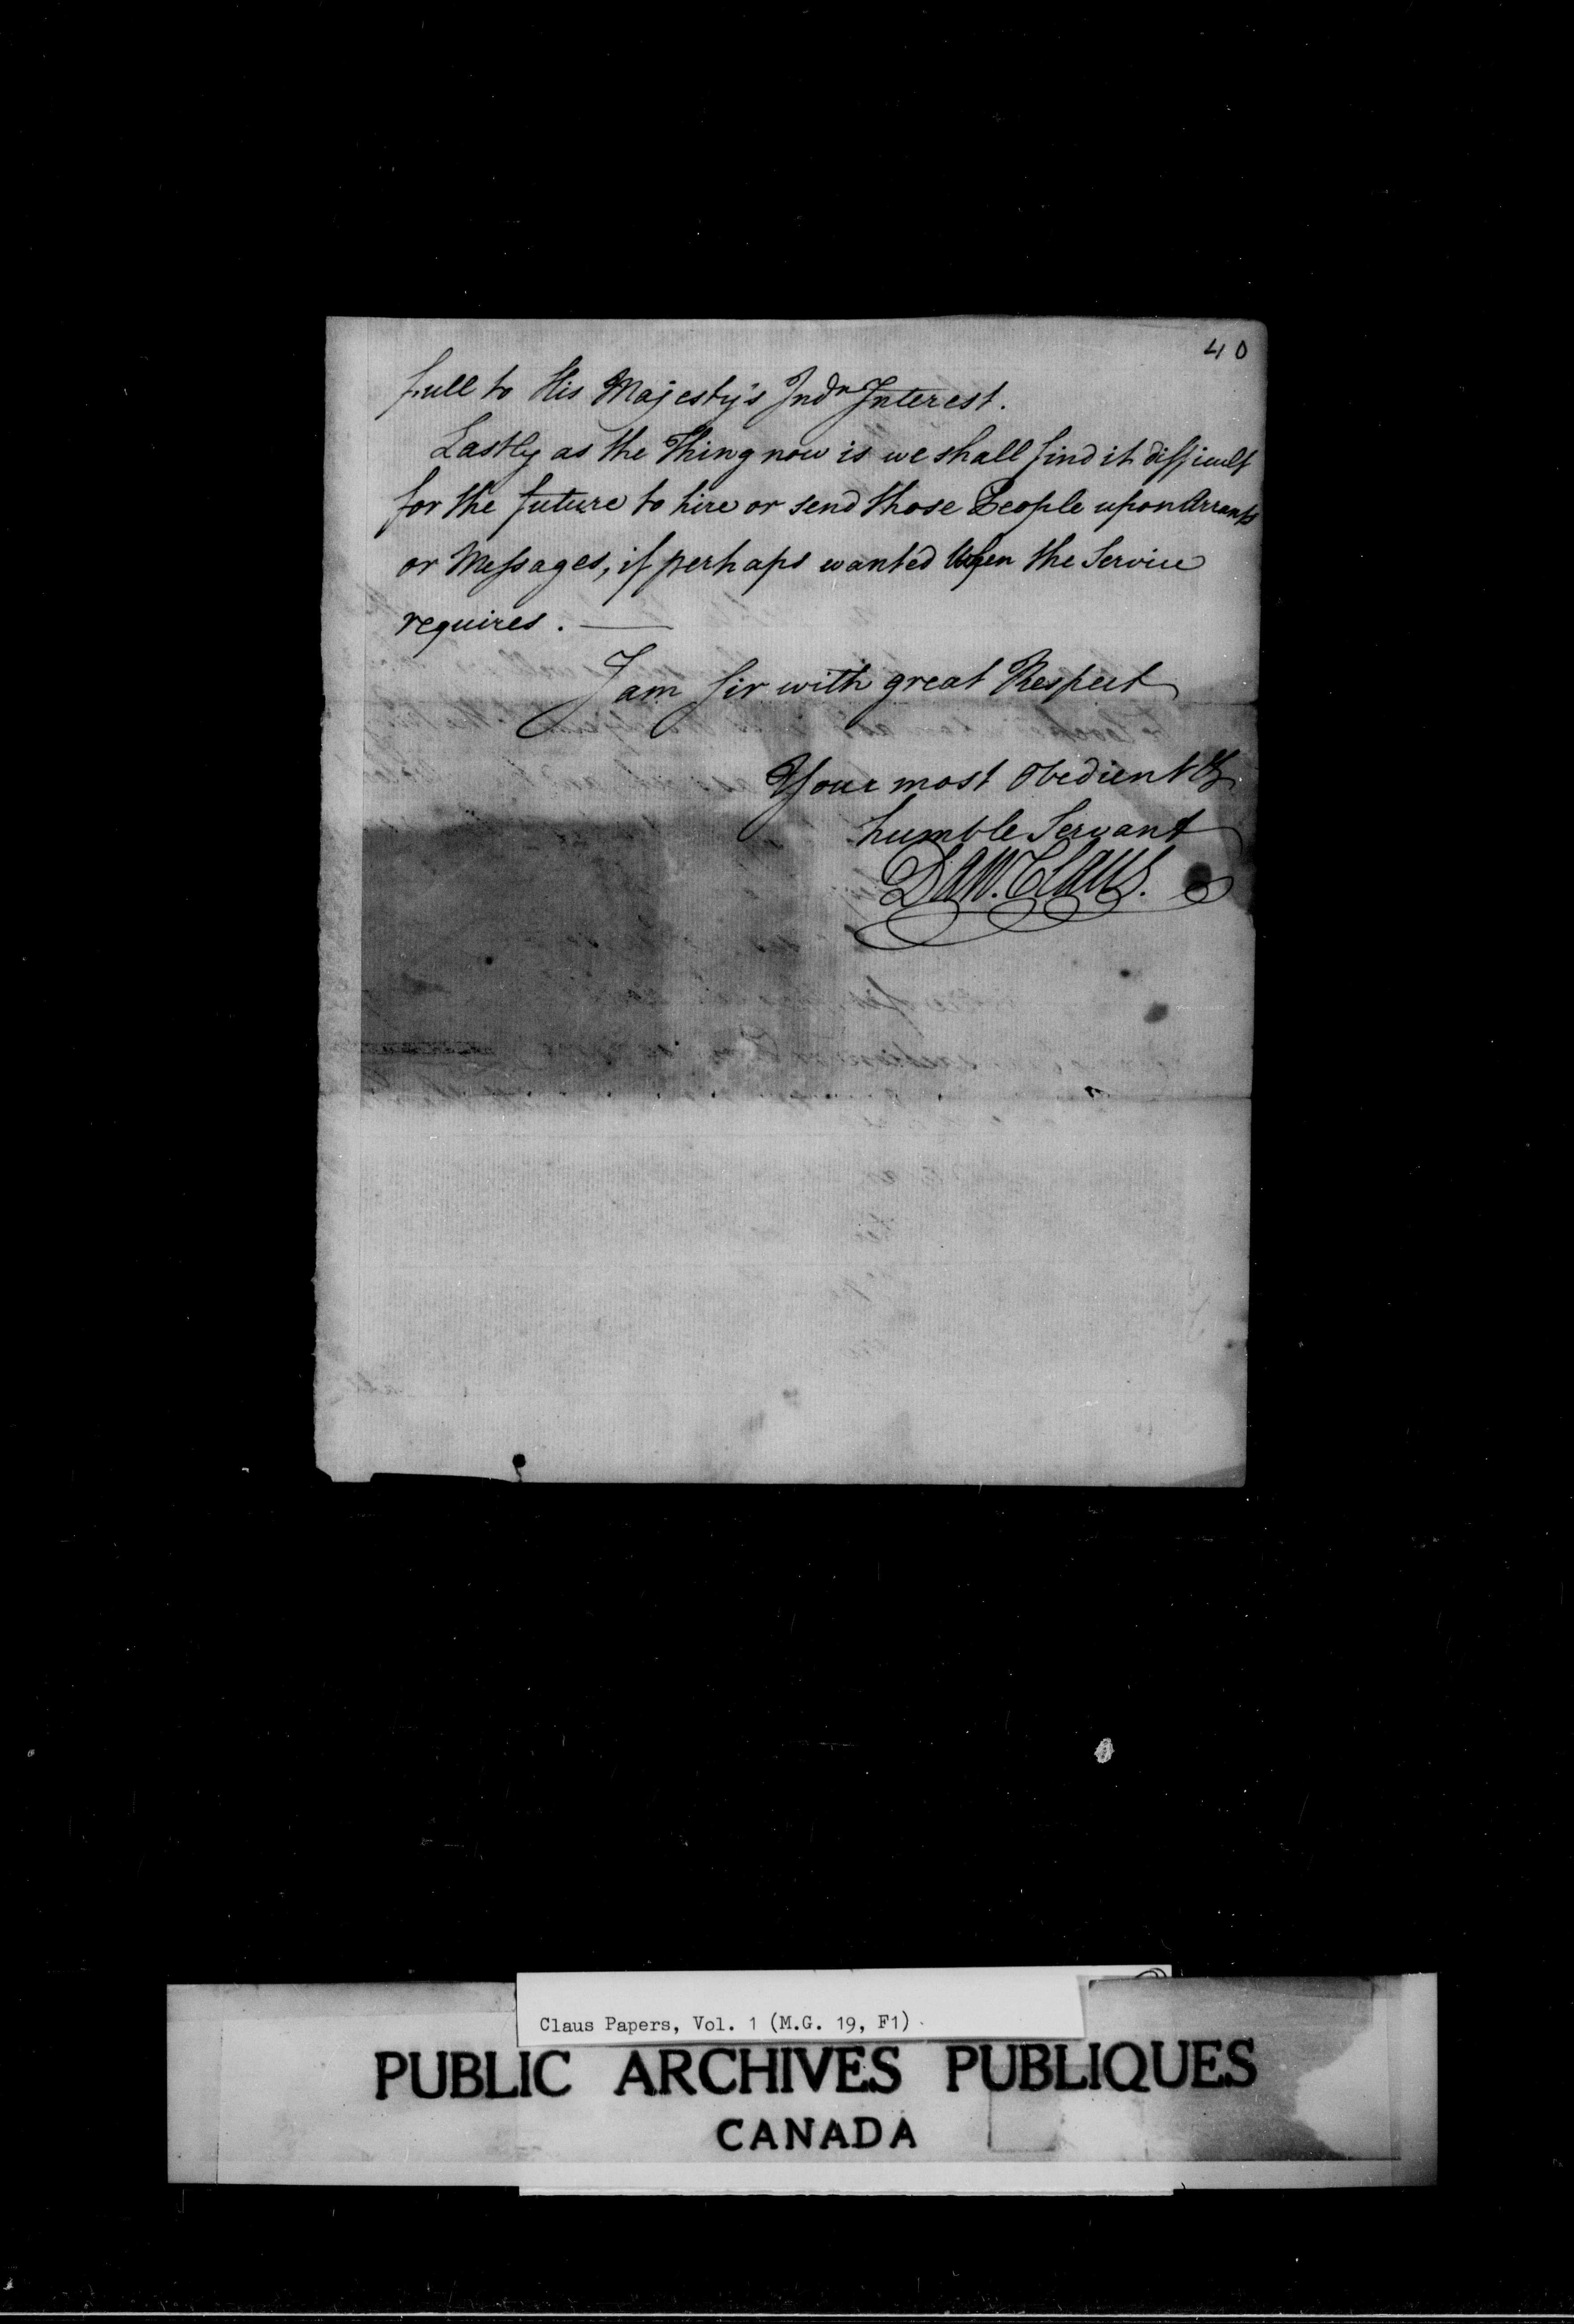 40
full to His Majesty's Indn Interest.
Lastly as the Thing now is we shall find it difficult
for the future to hire or send those People upon Arrants
or Messages, if perhaps wanted when the Service
requires. —
I am Sir with great Respect
Your most Obedient &
humble Servant
Dan. Claus.
Claus Papers, Vol. 1 (M.G. 19, F1)
PUBLIC ARCHIVES PUBLIQUES
CANADA